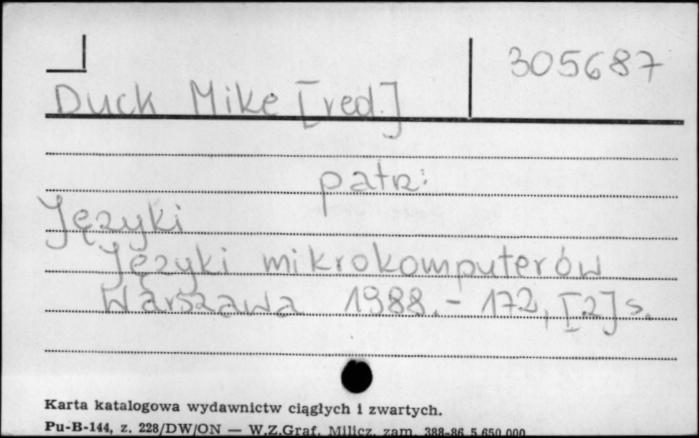 305687
Duck Mike [red.]
patrz:
Języki
Języki mikrokomputerów
Warszawa 1988. - 172, [2] s.
Karta katalogowa wydawnictw ciągłych i zwartych.
Pu-B-144, z. 228/DW/ON — W.Z.Graf. Milicz, zam. 388-86 5.650.000